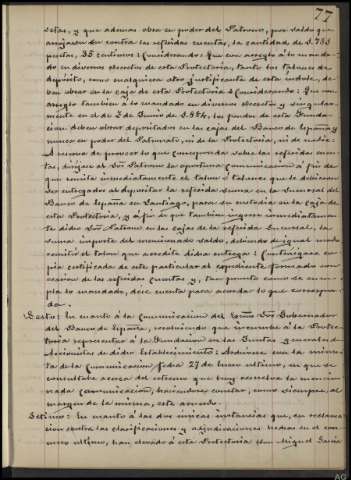 77
setas, y que ademas obra en poder del Patrono, por saldo que
arrojaron en contra las referidas cuentas, la cantidad de 1.783
pesetas, 35 centimos: Considerando: Que con arreglo á lo manda-
do en diversos decretos de esta Protectoria, tanto los talones de
depósito, como cualquiera otro justificante de esta indole, de-
ben obrar en la caja de esta Protectoria: Considerando: Que con
arreglo tambien á lo mandado en diversos decretos y singular-
mente en el de 2 de Junio de 1.884, los fondos de esta Funda-
cion deben obrar depositados en las cajas del Banco de España y
nunca en poder del Patronato, ni de la Protectoria, ni de nadie:
A reserva de proveer lo que corresponda sobre las referidas cuen-
tas, dirijase al Sr. Patrono la oportuna comunicacion á fin de
que remita inmediatamente el talon ó talones que le debieron
ser entregados al depositar la referida suma en la Sucursal del
Banco de España en Santiago, para su custodia en la caja de
esta Protectoria, y á fin de que tambien ingrese inmediatamen-
te dicho Sr. Patrono en las cajas de la referida Sucursal, la
suma importe del mencionado saldo, debiendo de igual modo
remitir el talon que acredite dicha entrega:
pia certificada de este particular al expediente formado con
ocasion de las referidas cuentas y, tan pronto como se cum-
pla lo mandado, dése cuenta para acordar lo que correspon-
da.
Sexto: En cuanto á la comunicacion del Excmo Sr. Gobernador
del Banco de España, resolviendo que incumbe á la Protec-
toria representar á la Fundacion en las Juntas generales de
Accionistas de dicho Establecimiento: Archivese con la minu-
ta de la comunicacion fecha 27 de Enero ultimo, en que se
consultaba acerca del extremo que hoy resuelve la mencio-
nada comunicacion, haciendose constar, como siempre, al
margen de la misma, este acuerdo.
Sétimo: En cuanto á las dos unicas instancias que, en reclama-
cion contra las clasificaciones y adjudicaciones hechas en el con-
curso ultimo, han elevado á esta Protectoria Don Miguel Garcia